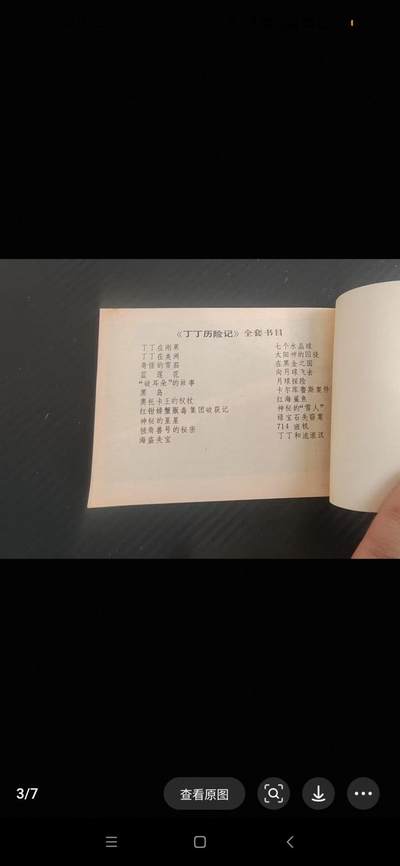 《丁丁历险记》全套书目
丁丁在刚果
丁丁在美洲
奇怪的雪茄
蓝 莲 花
“破耳朵”的故事
黑 岛
奥托卡王的权杖
红钳螃蟹贩毒集团破获记
神秘的星星
独角兽号的秘密
海盗失宝
七个水晶球
太阳神的囚徒
在黑金之国
向月球飞去
月球探险
卡尔库鲁斯案件
红海鲨鱼
神秘的“雪人”
绿宝石失窃案
714 班机
丁丁和流浪汉
3/7
查看原图